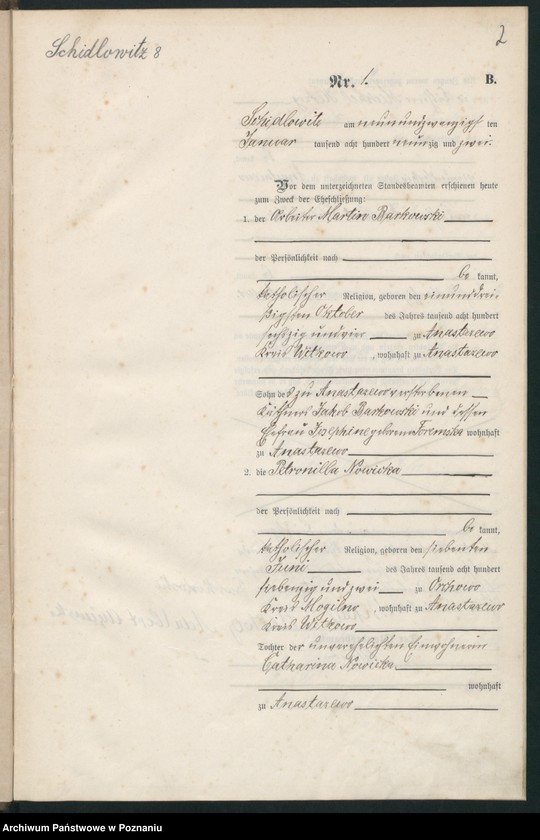 2
Schidlowitz 8
Nr. 1. B.
Schidlowitz am neunundzwanzigsten
Januar tausend acht hundert neunzig und zwei.
Vor dem unterzeichneten Standesbeamten erschienen heute
zum Zweck der Eheschließung:
1. der Arbeiter Martin Barkowski
der Persönlichkeit nach
be kannt,
katholischer Religion, geboren den einunddrei
ßigsten Oktober des Jahres tausend acht hundert
sechszig und vier zu Anastazewo
Kreis Witkowo, wohnhaft zu Anastazewo
Sohn des zu Anastazewo verstorbenen
Käthners Jakob Barkowski und dessen
Ehefrau Josephine geborene Toremska wohnhaft
zu Anastazewo
2. die Petronilla Nowicka
der Persönlichkeit nach
be kannt,
katholischer Religion, geboren den siebenten
Juni des Jahres tausend acht hundert
siebenzig und zwei zu Orchowo
Kreis Mogilno wohnhaft zu Anastazewo
Kreis Witkowo
Tochter der unverehelichten Einwohnerin
Catharina Nowicka
wohnhaft
zu Anastazewo
Archiwum Państwowe w Poznaniu